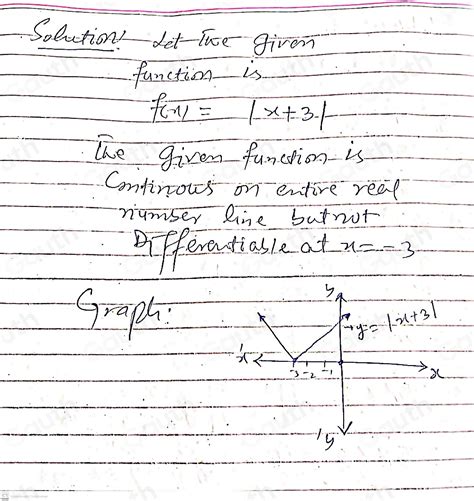 Solution! Let the given
function is
f(x) = |x+3|
The given function is
Continous on entire real
number line but not
Differentiable at x = -3
Graph:
y
y = |x+3|
x'
-3 -2 -1
x
'y